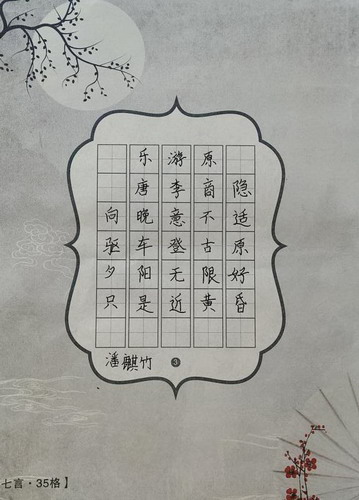 乐游原
唐李商隐
向晚意不适
驱车登古原
夕阳无限好
只是近黄昏
潘麒竹 3
七言·35格】